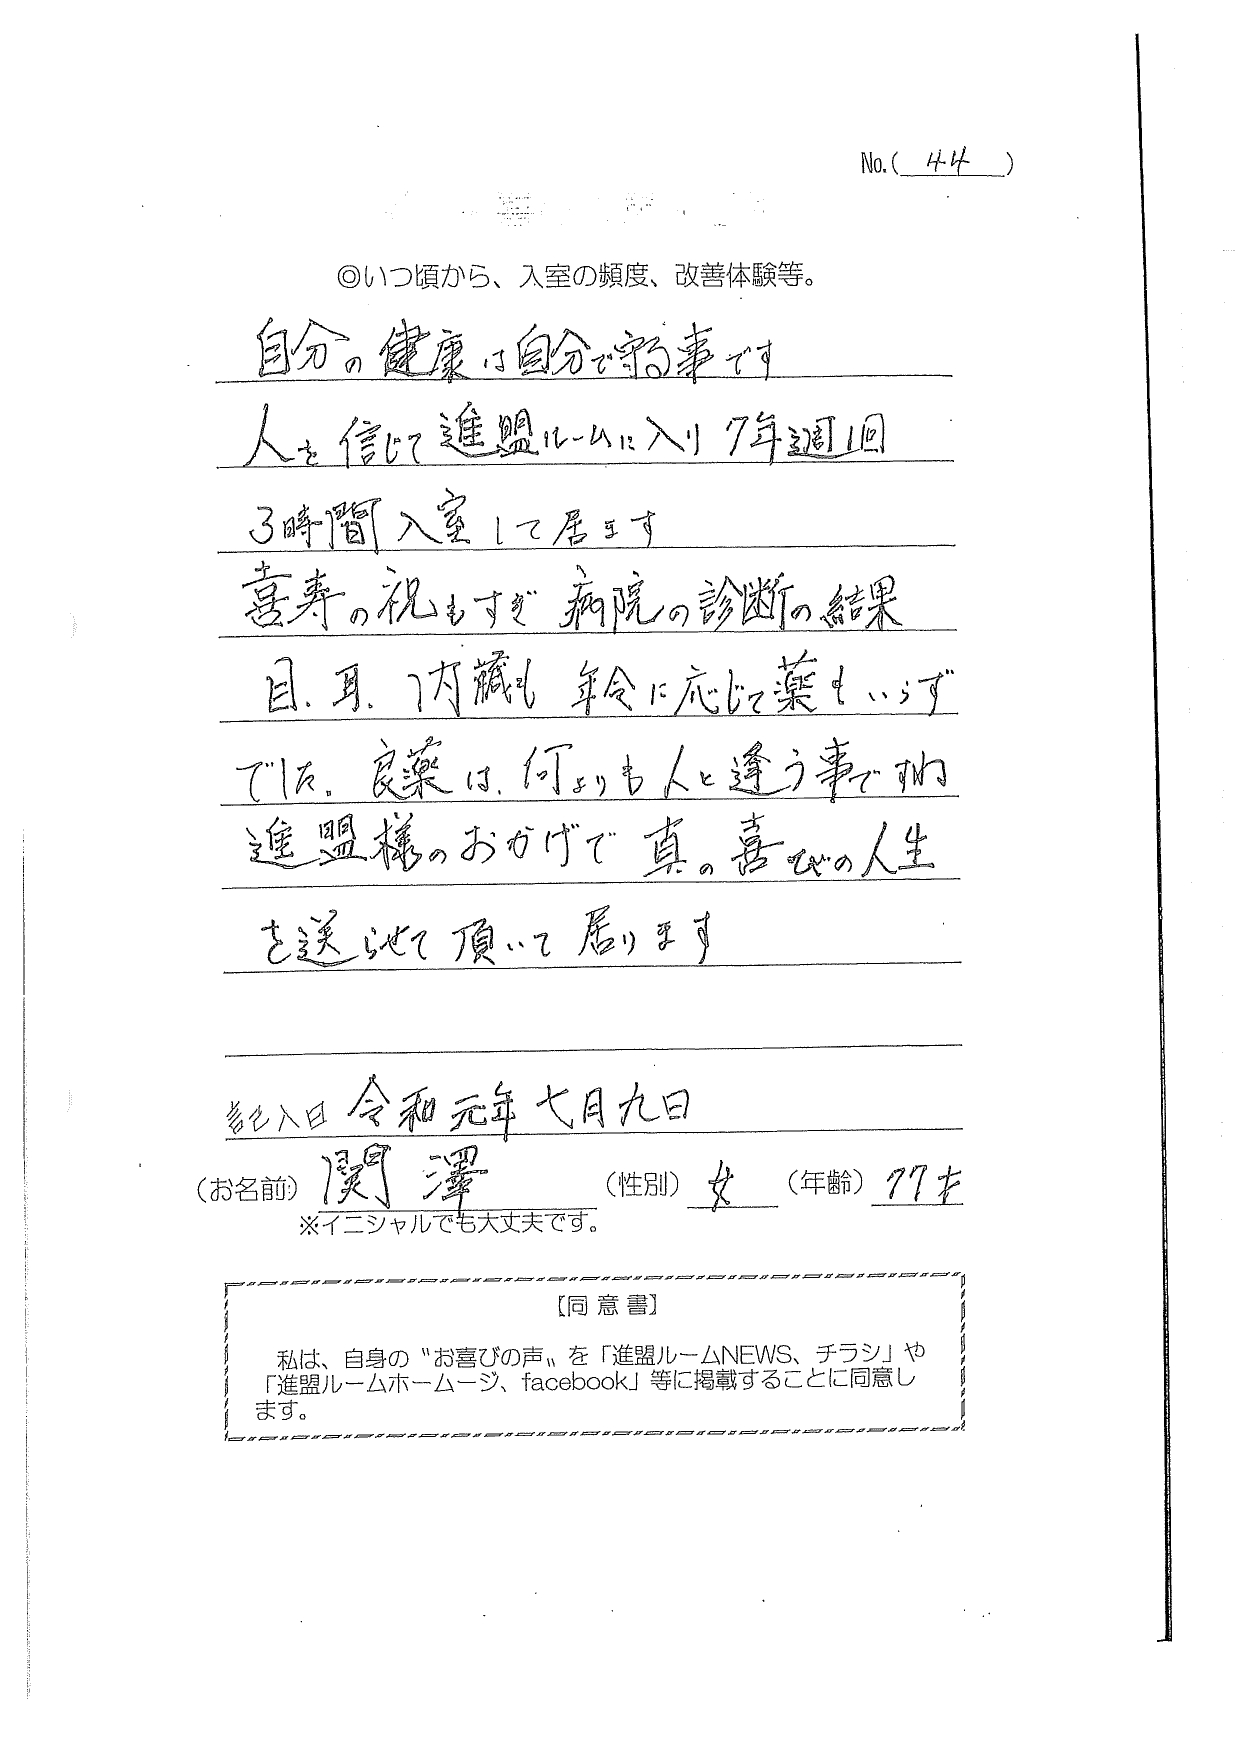 No.( 44 )
◎いつ頃から、入室の頻度、改善体験等。
自分の健康は自分で守る事です
人を信じて進盟ルームに入り 7年週1回
3時間入室して居ます
喜寿の祝もすぎ 病院の診断の結果
目、耳、内臓も 年令に応じて薬もいらず
でした。良薬は、何よりも人と逢う事ですね
進盟様のおかげで 真の喜びの人生
を送らせて頂いて居ります
記入日 令和元年七月九日
(お名前) 関澤 (性別) 女 (年齢) 77才
※イニシャルでも大丈夫です。
【同意書】
私は、自身の〝お喜びの声〟を「進盟ルームNEWS、チラシ」や
「進盟ルームホームージ、facebook」等に掲載することに同意し
ます。